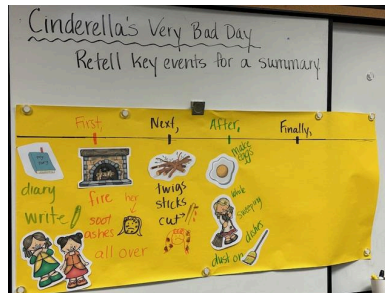 Cinderella's Very Bad Day
Retell key events for a summary
First, Next, After, Finally,
diary
write
fire
soot
ashes
all over
her
twigs
sticks
cut
make
eggs
sweeping
dishes
dust on